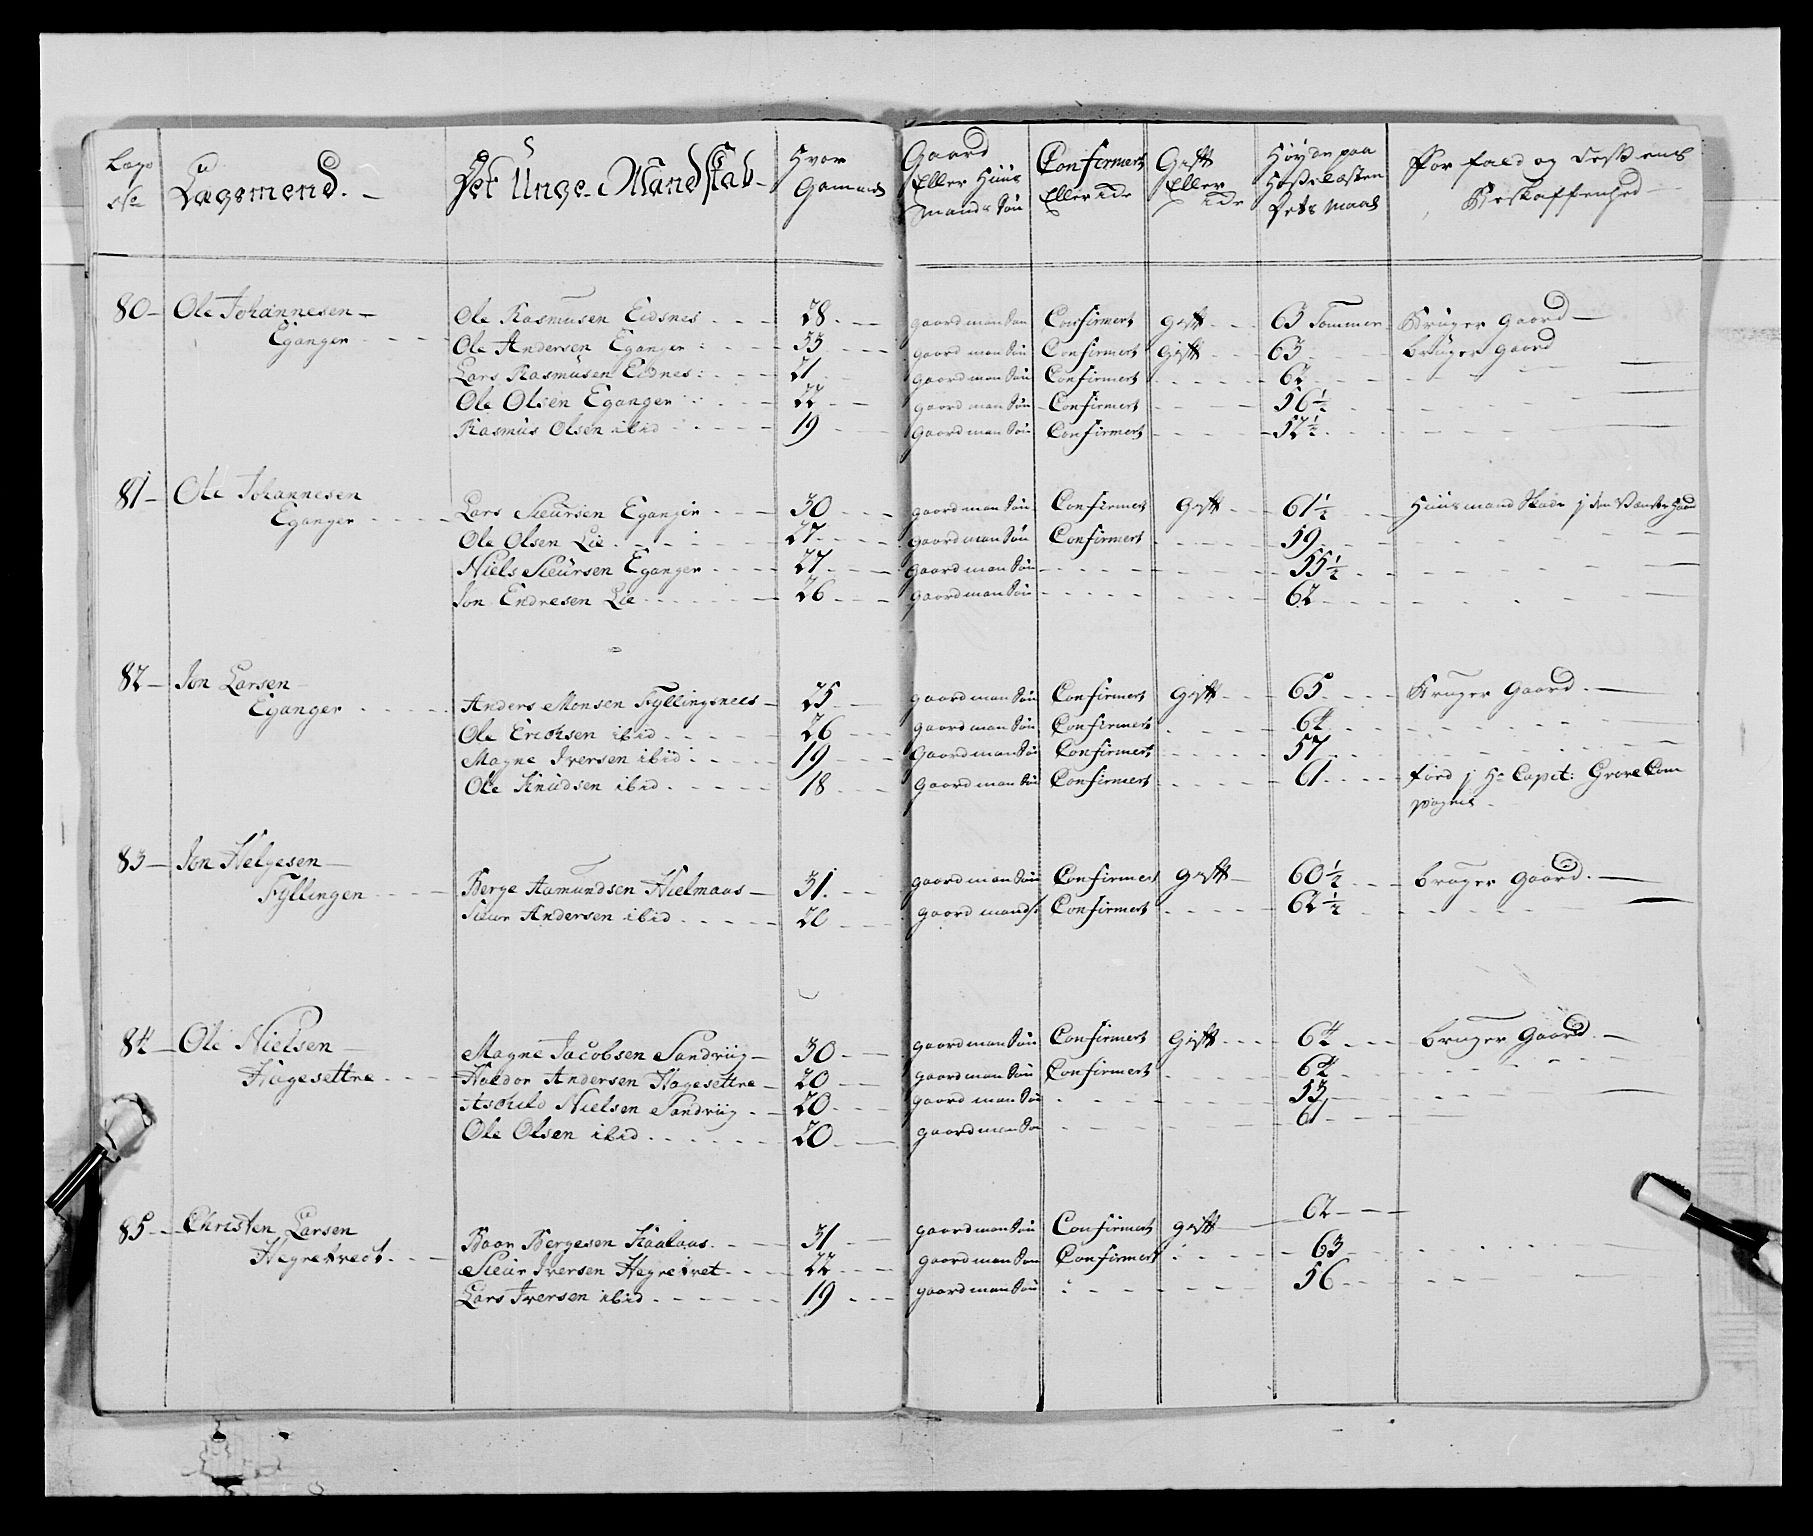 Lægs No | Lægsmend. | Det Unge Mandskab | Hvor Gammel | Gaard Eller Huus Mands Søn | Confirmert Eller Ide | Gift Eller Ide | Høyde paa Hosselæsten Dets Maal | For fald og dessens Beskaffenhed
80 Ole Johannesen | Ole Rasmusen Eidsnes | 28 | gaard man Søn | Confirmert | gift | 63 Tommer | Bruger Gaard
Eganger | Ole Andersen Eganger | 33 | gaard man Søn | Confirmert | Gift | 63 | bruger gaard
Lars Rasmusen Eidnes | 21 | gaard man Søn | Confirmert | 62
Ole Olsen Eganger | 22 | gaard man Søn | Confirmert | 56 1/2
Rasmus Olsen ibid | 19 | gaard man Søn | Confirmert | 52 1/2
81 Ole Johannesen
Eganger | Lars Sieursen Eganger | 30 | gaard man Søn | Confirmert | Gift | 61 1/2 | Huusmand
Ole Olsen Lie | 27 | gaard man Søn | Confirmert | 59
Niels Sieursen Eganger | 27 | gaard man Søn | 55 1/2
Jon Endresen Lie | 26 | gaard man Søn | 62
82 Jon Larsen
Eganger | Anders Monsen Fyllingsnees | 25 | gaard man Søn | Confirmert | Gift | 65 | Bruger Gaard
Ole Erichsen ibid | 26 | gaard man Søn | Confirmert | 64
Magne Iversen ibid | 19 | Gaard man Søn | Confirmert | 57
Ole Knudsen ibid | 18 | gaard man Søn | Confirmert | 61 | førd j Hr Capit: Grove Com
pagnie
83 Jon Helgesen
Fyllingen | Berge Aamundsen Hielmaas | 31 | gaard man Søn | Confirmert | Gift | 60 1/2 | bruger Gaard
Siur Andersen ibid | 20 | gaard mands | Confirmert | 62 1/2
84 Ole Nielsen | Magne Jacobsen Sandviig | 30 | gaard man Søn | Confirmert | Gift | 64 | bruger Gaard
Hagesettre | Haldor Andersen Hagesettre | 20 | gaard man Søn | Confirmert | 62
Aschild Nielsen Sandviig | 20 | gaard man Søn | 53
Ole Olsen ibid | 20 | gaard man Søn | 61
85 Christen Larsen | Baar Bergesen Kaalaas | 31 | gaard man Søn | Confirmert | gift | 62
Hegretvect | Sieur Iversen Hegretvet | 22 | gaard man Søn | Confirmert | 63
Lars Iversen ibid | 19 | gaard man Søn | 56